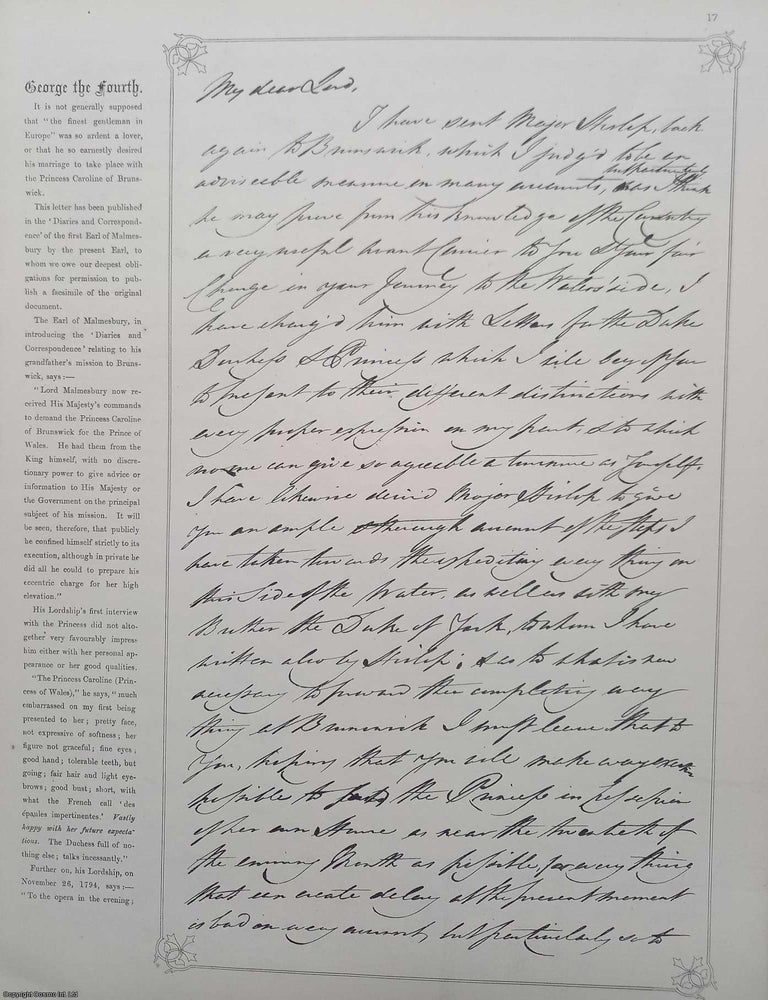 17
George the Fourth.
It is not generally supposed
that "the finest gentleman in
Europe" was so ardent a lover,
or that he so earnestly desired
his marriage to take place with
the Princess Caroline of Bruns-
wick.
This letter has been published
in the 'Diaries and Correspond-
ence' of the first Earl of Malmes-
bury by the present Earl, to
whom we owe our deepest obli-
gations for permission to pub-
lish a facsimile of the original
document.
The Earl of Malmesbury, in
introducing the 'Diaries and
Correspondence' relating to his
grandfather's mission to Bruns-
wick, says:—
"Lord Malmesbury now re-
ceived His Majesty's commands
to demand the Princess Caroline
of Brunswick for the Prince of
Wales. He had them from the
King himself, with no discre-
tionary power to give advice or
information to His Majesty or
the Government on the principal
subject of his mission. It will
be seen, therefore, that publicly
he confined himself strictly to its
execution, although in private he
did all he could to prepare his
eccentric charge for her high
elevation."
His Lordship's first interview
with the Princess did not alto-
gether very favourably impress
him either with her personal ap-
pearance or her good qualities.
"The Princess Caroline (Prin-
cess of Wales)," he says, "much
embarrassed on my first being
presented to her; pretty face,
not expressive of softness; her
figure not graceful; fine eyes,
good hand; tolerable teeth, but
going; fair hair and light eye-
brows; good bust; short, with
what the French call 'des
épaules impertinentes.' Vastly
happy with her future expecta-
tions. The Duchess full of no-
thing else; talks incessantly."
Further on, his Lordship, on
November 26, 1794, says:—
"To the opera in the evening;
My dear Lord,
I have sent Major Hislop, back
again to Brunswick, which I judg'd to be an
adviseable measure on many accounts, but particularly as I think
he may prove from his knowledge of the Country
a very useful avant Courier to You & Your fair
Charge in your Journey to the Waterside, I
have charg'd him with Letters for the Duke
Dutchess & Princess which I will beg of you
to present to their different distinctions with
every proper expression on my part, & to which
no one can give so agreeable a turnure as Yourself.
I have likewise desired Major Hislop to give
You an ample & thorough account of the steps I
have taken towards the expediting every thing on
this Side of the Water, as well as with my
Brother the Duke of York, to whom I have
written also by Hislop; & as to what is now
necessary to forward the completing every
thing at Brunswick I must leave that to
You, hoping that You will make every exertion
possible to put the Princess in possession
of her own House as near the twentieth of
the ensuing Month as possible, for every thing
that can create delay at the present moment
is bad on every account, but particularly so to
Copyright Cosmo Int Ltd